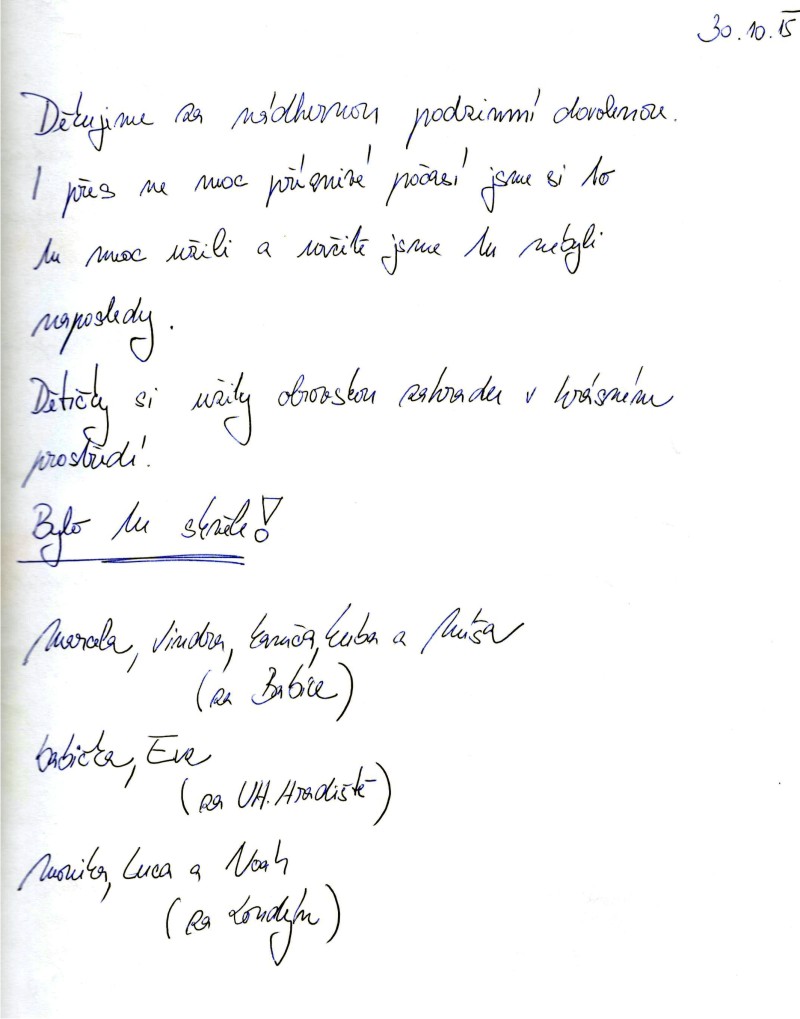 30.10.15
Děkujime za nádhernou podzimní dovolenou.
I přes ne moc příznivé počasí jsme si to
tu moc užili a určitě jsme tu nebyli
naposledy.
Dětičky si užily obrovskou zahradu v krásném
prostředí.
Bylo tu skvěle!
Marcela, Jindra, Kuba a
(za Babice)
babička, Eva
(za UH. Hradiště)
Monika, Luca a Noah
(za Londýn)